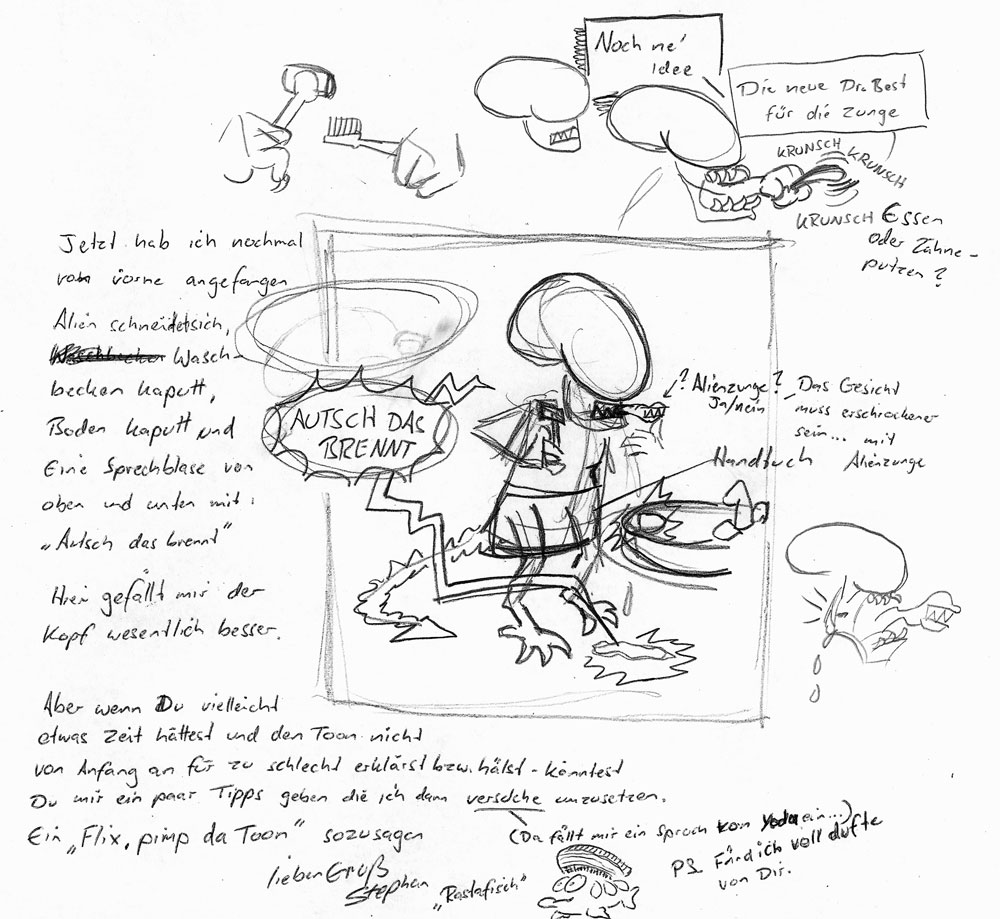 Noch ne'
idee
Die neue Dr. Best
für die Zunge
KRUNSCH
KRUNSCH
KRUNSCH
Essen
oder Zähne-
putzen?
Jetzt hab ich nochmal
von vorne angefangen
Alien schneidet sich,
Wasch-
becken kaputt,
Boden kaputt und
Eine Sprechblase von
oben und unten mit:
„Autsch das brennt"
Hier gefällt mir der
Kopf wesentlich besser.
AUTSCH DAS
BRENNT
? Alienzunge?
Ja/nein
Das Gesicht
muss erschrockener
sein... mit
Alienzunge
Handtuch
Aber wenn Du vielleicht
etwas Zeit hättest und den Toon nicht
von Anfang an für zu schlecht erklärst bzw. hälst - könntest
Du mir ein paar Tipps geben die ich dann versuche umzusetzen.
Ein „Flix, pimp da Toon" sozusagen
(Da fällt mir ein Spruch von Yoda ein...)
lieben Gruß
Stephan „Rastafisch"
PS Fänd ich voll dufte
von Dir.